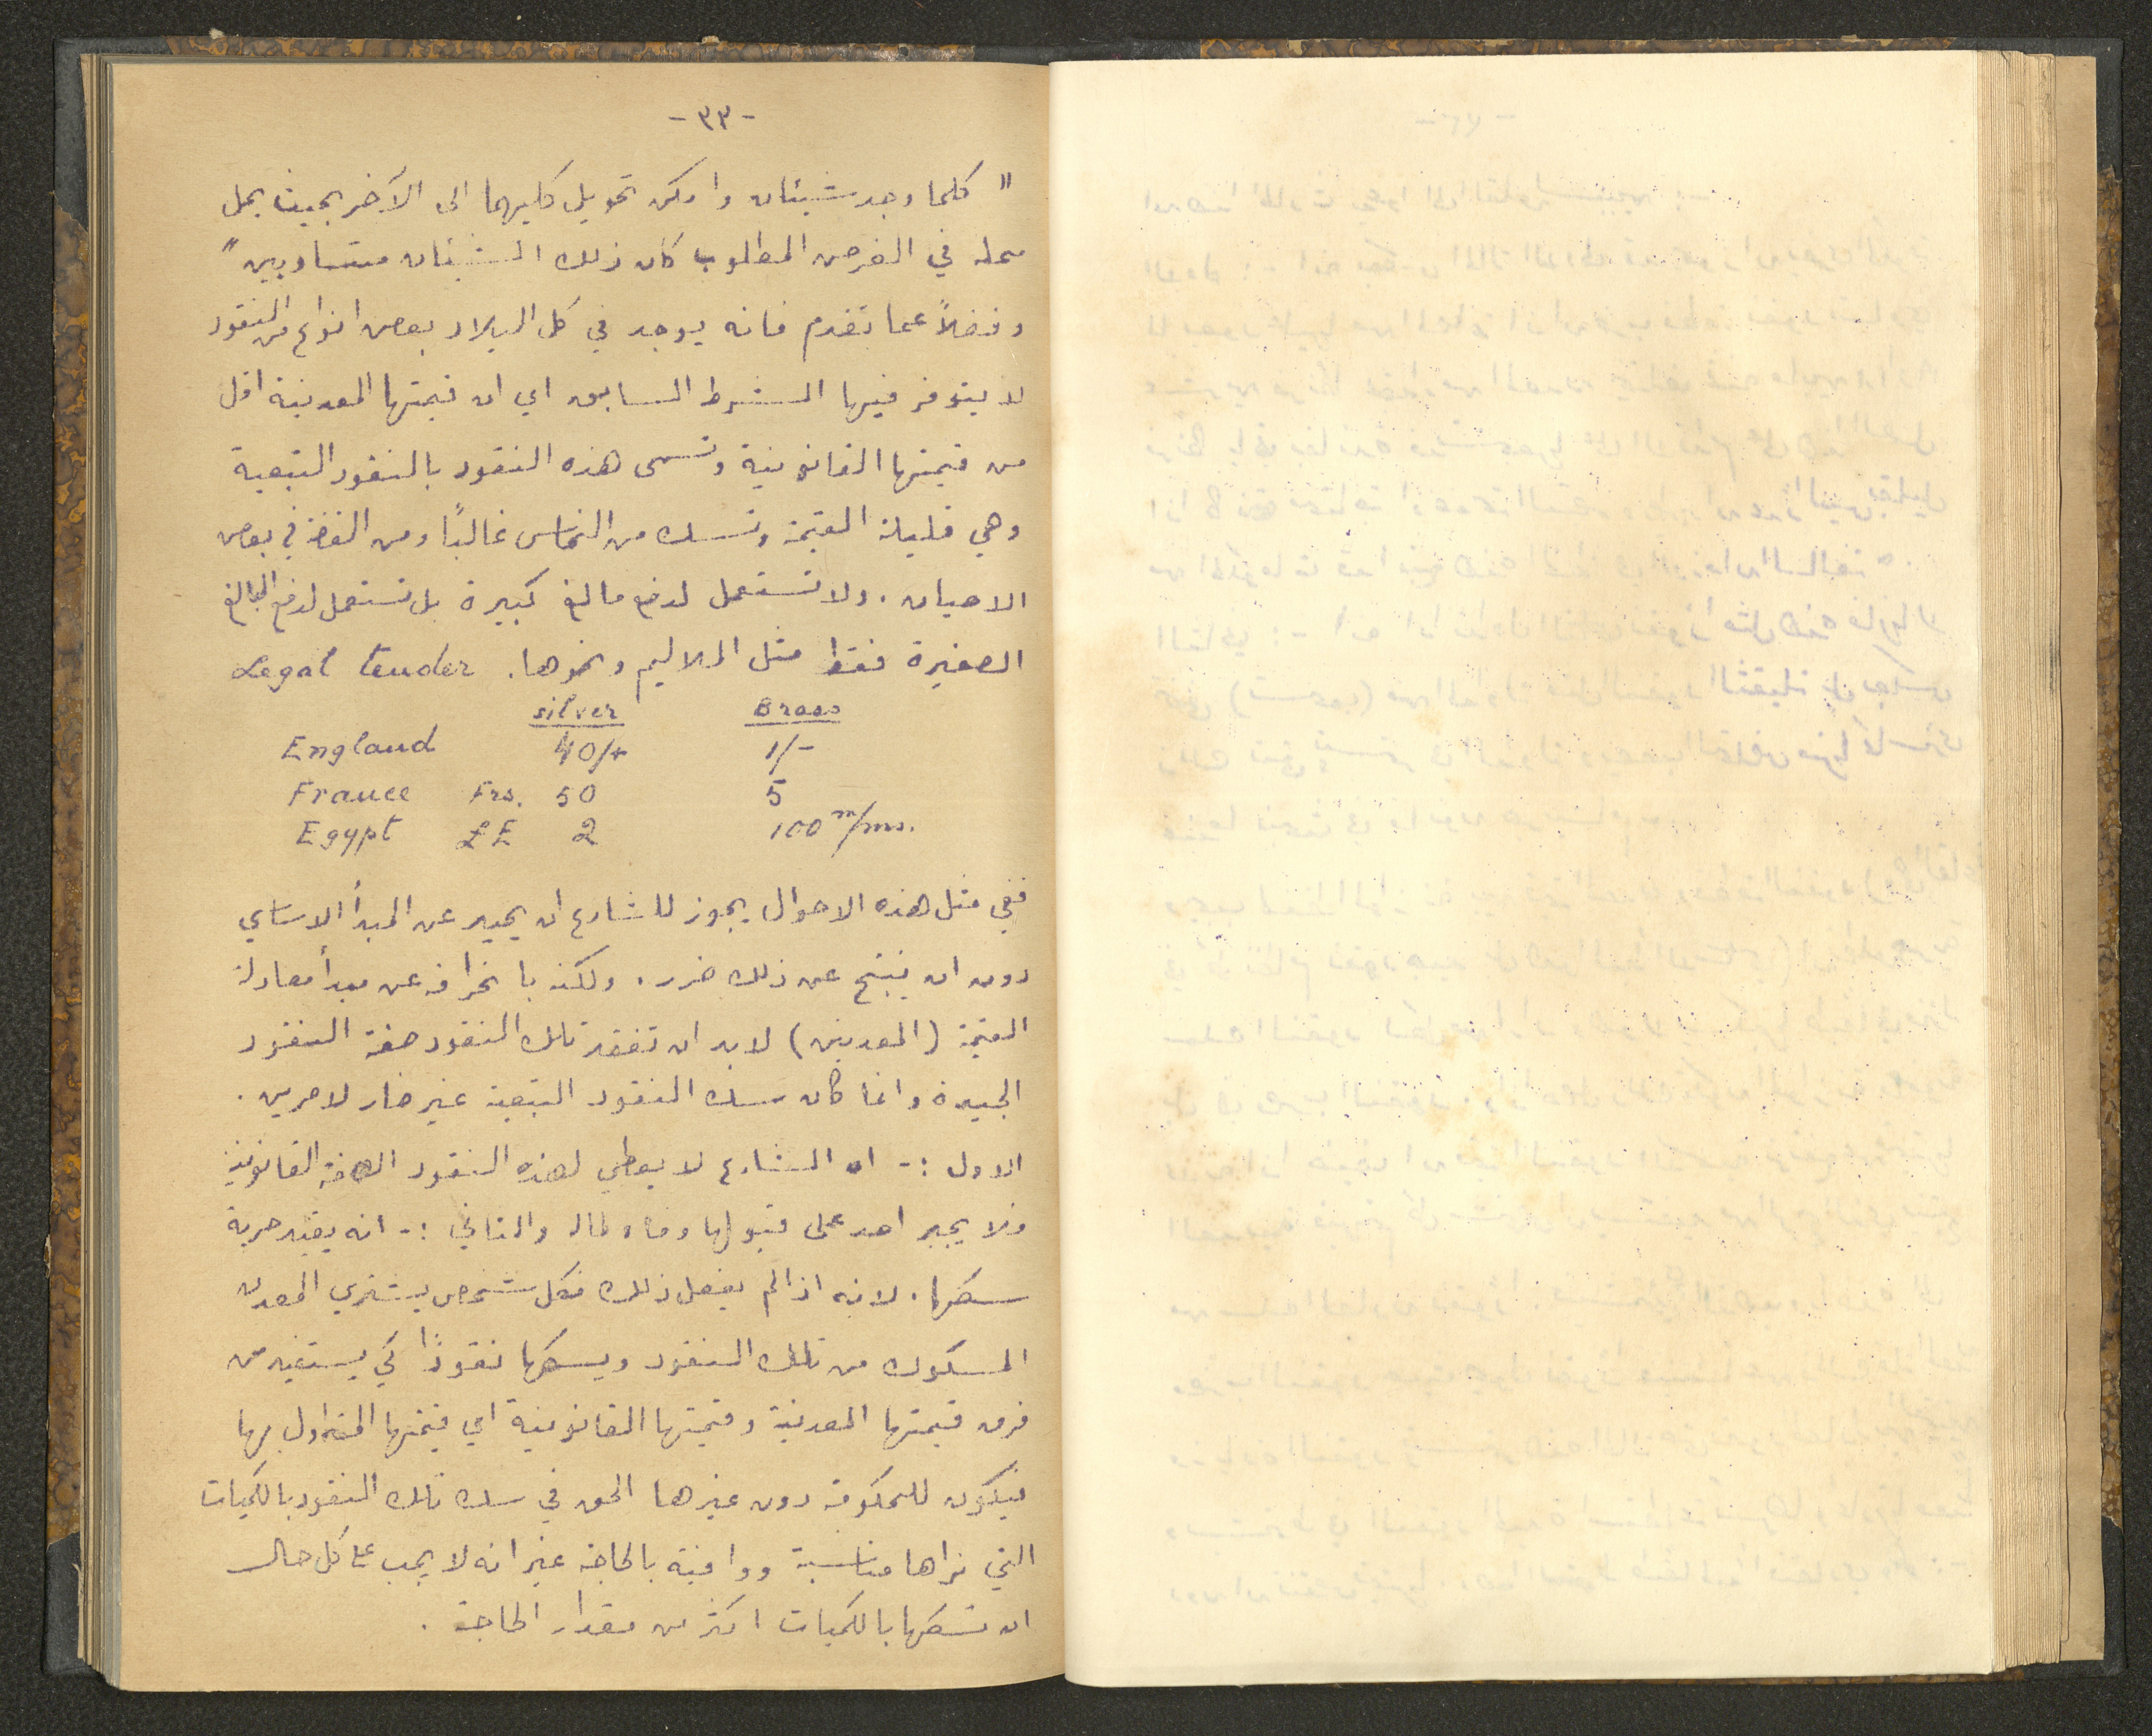 -٣٣-
" كلما وجد شيئان وامكن تحويل كليهما الى الآخر بحيث يحل
محله في الغرض المطلوب كان ذلك الشيئان متساويين "
وفضلاً عما تقدم فانه يوجد في كل البلاد بعض انواع من النقود
لا يتوفر فيها الشرط السابق اي ان قيمتها المعدنية اقل
من قيمتها القانونية وتسمى هذه النقود بالنقود التبعية
وهي قليلة القيمة وتسك من النحاس غالبًا ومن الفضة في بعض
الاحيان . ولا تستعمل لدفع مبالغ كبيرة بل تستعمل لدفع المبالغ
الصغيرة فقط مثل الملاليم ونحوها. Legal tender
silver Brass
England 40/- 1/-
France Frs. 50 5
Egypt £E 2 100 m/ms.
ففي مثل هذه الاحوال يجوز للشارع ان يحيد عن المبدأ الاساسي
دون ان ينتج عن ذلك ضرر . ولكنه بانحرافه عن مبدأ معادلة
القيمة (المعدنين) لابد ان تفقد تلك النقود صفة النقود
الجيدة وانما كان سك النقود التبعية غير ضار لامرين .
الاول :- ان الشارع لا يعطي لهذه النقود الصفة القانونية
فلا يجبر احد على قبولها وفاء لماله والثاني :- انه يقيد حرية
سكها . لانه اذا لم يفعل ذلك فكل شخص يشتري المعدن
المسكوك من تلك النقود ويسكها نقودًا كي يستفيد من
فرق قيمتها المعدنية وقيمتها القانونية اي قيمتها المتداول بها
فيكون للحكومة دون غيرها الحق في سك تلك النقود بالكميات
التي تراها مناسبة ووافية بالحاجة غير انه لا يجب على كل حال
ان تسكها بالكميات اكثر من مقدار الحاجة .